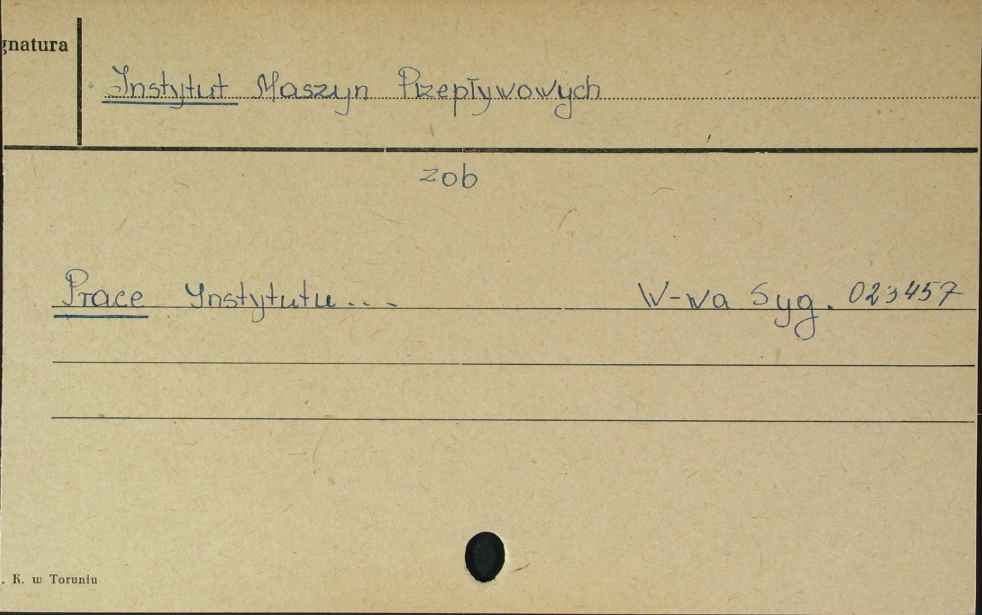 gnatura
Instytut Maszyn Przepływowych
zob
Prace Instytutu... W-wa Syg. 023457
. K. w Toruniu